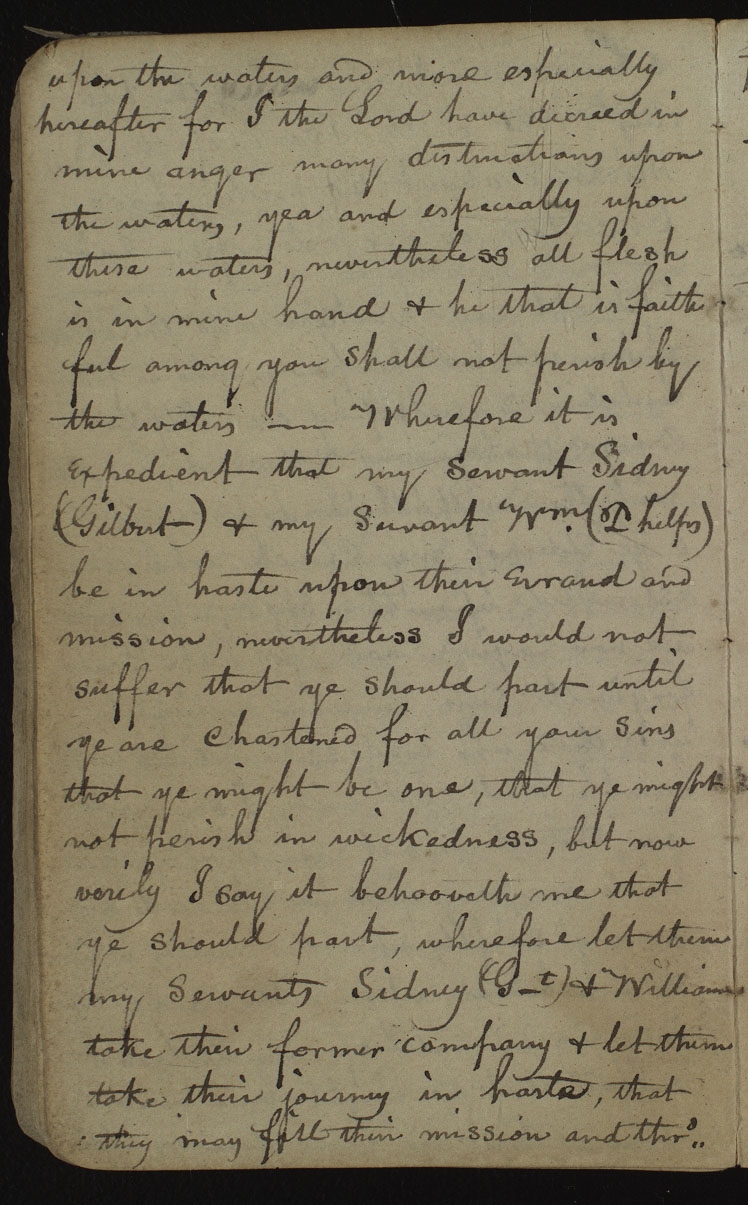 upon the waters and more especially
hereafter for I the Lord have decreed in
mine anger many distructions upon
the waters, yea and especially upon
these waters, nevertheless all flesh
is in mine hand & he that is faith
ful among you shall not perish by
the waters — Wherefore it is
Expedient that my Servant Sidney
(Gilbert) & my Survant Wm. (Phelps)
be in haste upon their Errand and
mission, nevertheless I would not
suffer that ye should part until
ye are Chastened for all your Sins
that ye might be one, that ye might
not perish in wickedness, but now
verily I say it behooveth me that
ye should part, wherefore let them
my Servants Sidney (G-t) & William
take their former company & let them
take their journey in haste, that
they may fill their mission and thro..